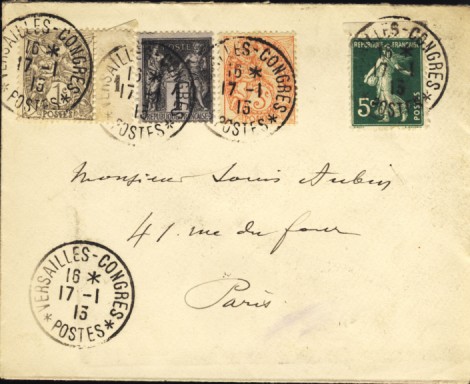 VERSAILLES-CONGRÈS
16 *
17 -1
13
* POSTES *
VERSAILLES-CONGRÈS
17 -1
13
POSTES
POSTE
VERSAILLES-CONGRÈS
16 *
17 -1
13
POSTES *
VERSAILLES-CONGRÈS
13
POSTES *
REPUBLIQUE FRANÇAISE
5c
POSTES
Monsieur Louis Aubin
41 rue du four
Paris
* VERSAILLES-CONGRÈS *
16 *
17 -1
13
POSTES